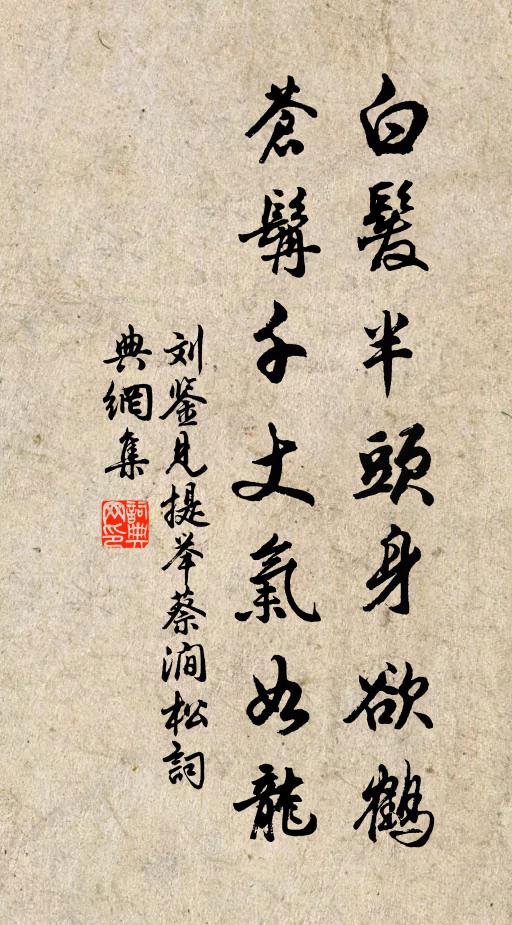 白髮半頭身欲鶴
蒼髯千丈氣如龍
刘鉴見提举蔡澗松詞
典網集
詞典
网印